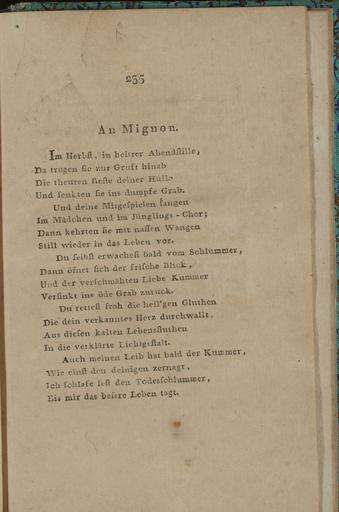 255
An Mignon.
Im Herbst, in heitrer Abendstille,
Da trugen sie zur Gruft hinab
Die theuren Reste deiner Hülle
Und senkten sie ins dumpfe Grab.
Und deine Mitgespielen sangen
Im Mädchen und im Jünglings-Chor;
Dann kehrten sie mit nassen Wangen
Still wieder in das Leben vor.
Du selbst erwachest bald vom Schlummer,
Dann öfnet sich der frische Blick,
Und der verschmähten Liebe Kummer
Versinkt ins öde Grab zurück.
Du rettest froh die heil'gen Gluthen
Die dein verkanntes Herz durchwallt,
Aus diesen kalten Lebensfluthen
In die verklärte Lichtgestalt.
Auch meinen Leib hat bald der Kummer,
Wie einst den deinigen zernagt,
Ich schlafe fest den Todesschlummer,
Bis mir das bessre Leben tagt.